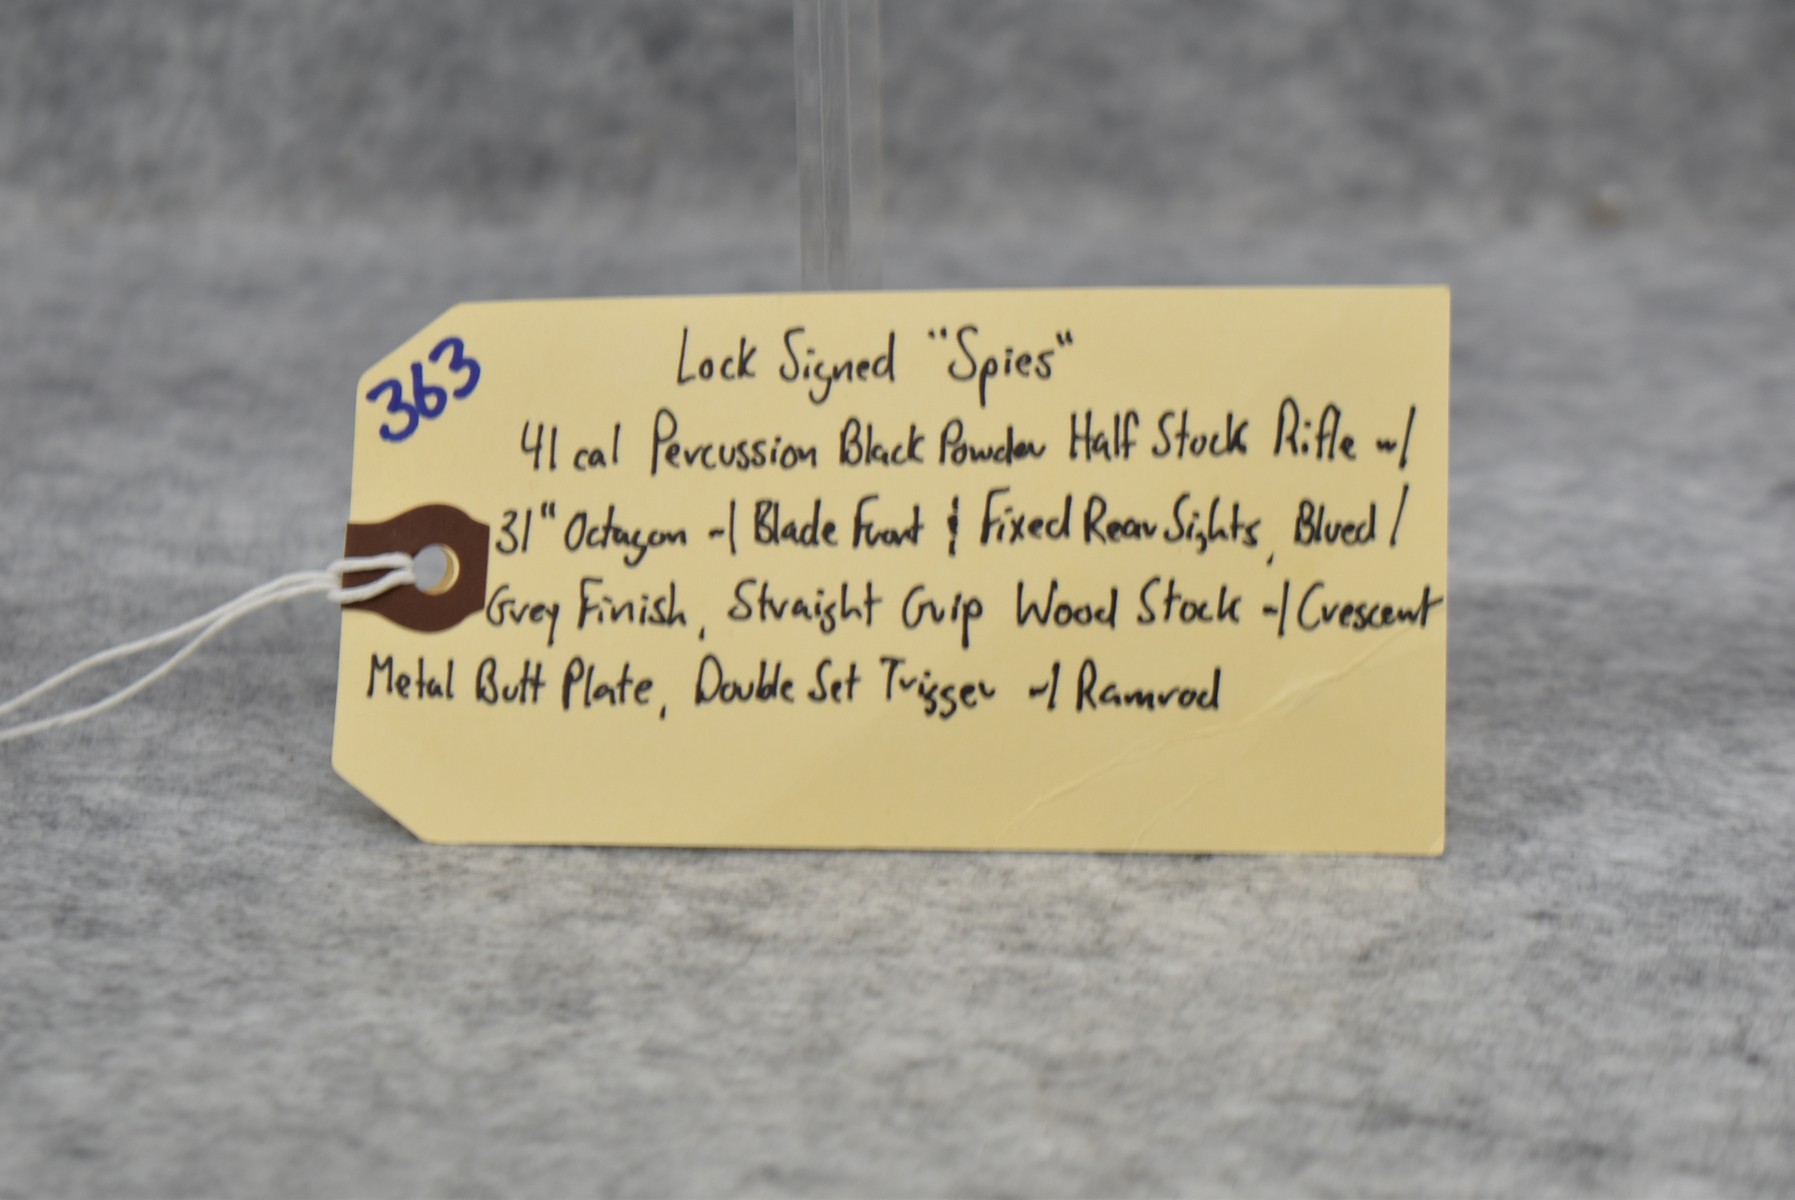 363
Lock Signed "Spies"
41 cal Percussion Black Powder Half Stock Rifle w/
31" Octagon w/ Blade Front & Fixed Rear Sights, Blued/
Grey Finish, Straight Grip Wood Stock w/ Crescent
Metal Butt Plate, Double Set Trigger w/ Ramrod